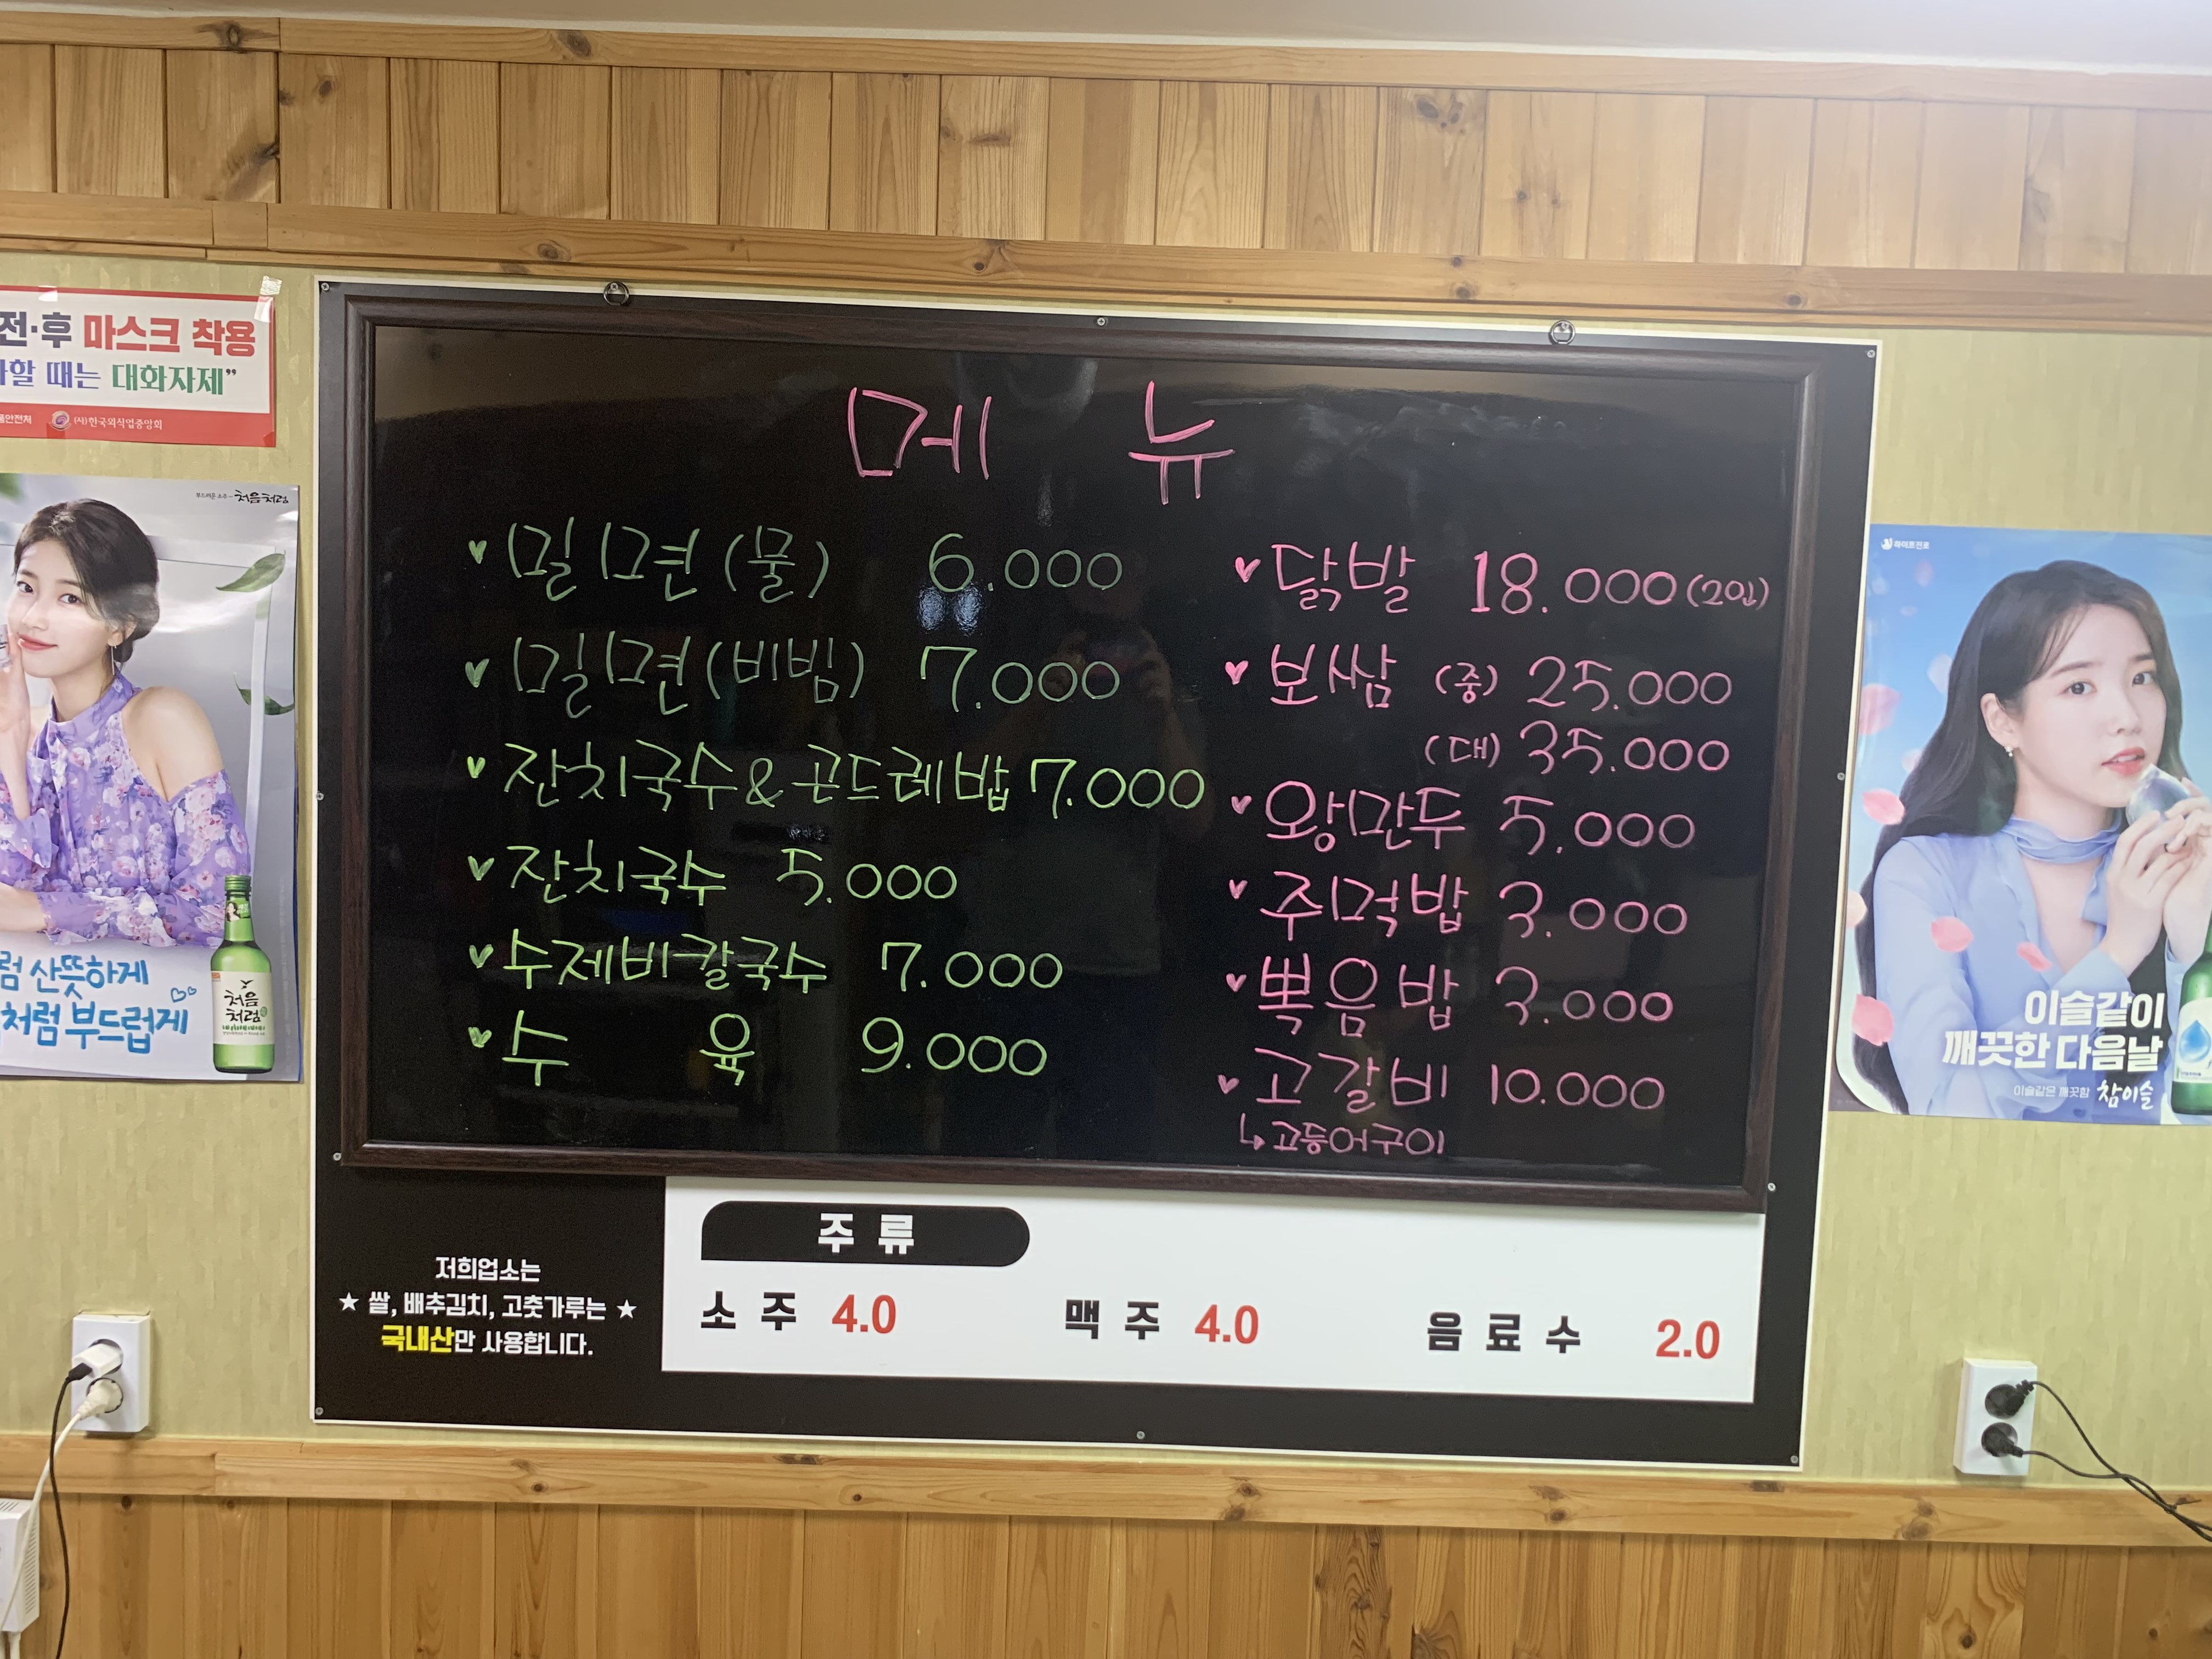 전·후 마스크 착용
할 때는 대화자제”
안전처 (사)한국외식업중앙회
부드러운 소주 처음처럼
처음
처럼
럼 산뜻하게
처럼 부드럽게
메 뉴
밀면(물) 6.000
밀면(비빔) 7.000
잔치국수&곤드레밥 7.000
잔치국수 5.000
수제비칼국수 7.000
수 육 9.000
닭발 18.000(2인)
보쌈 (중) 25.000
(대) 35.000
왕만두 5.000
주먹밥 3.000
뽁음밥 3.000
고갈비 10.000
↳고등어구이
저희업소는
★ 쌀, 배추김치, 고춧가루는 ★
국내산만 사용합니다.
주 류
소 주 4.0 맥 주 4.0 음 료 수 2.0
하이트진로
이슬같이
깨끗한 다음날
이슬같은 깨끗함 참이슬